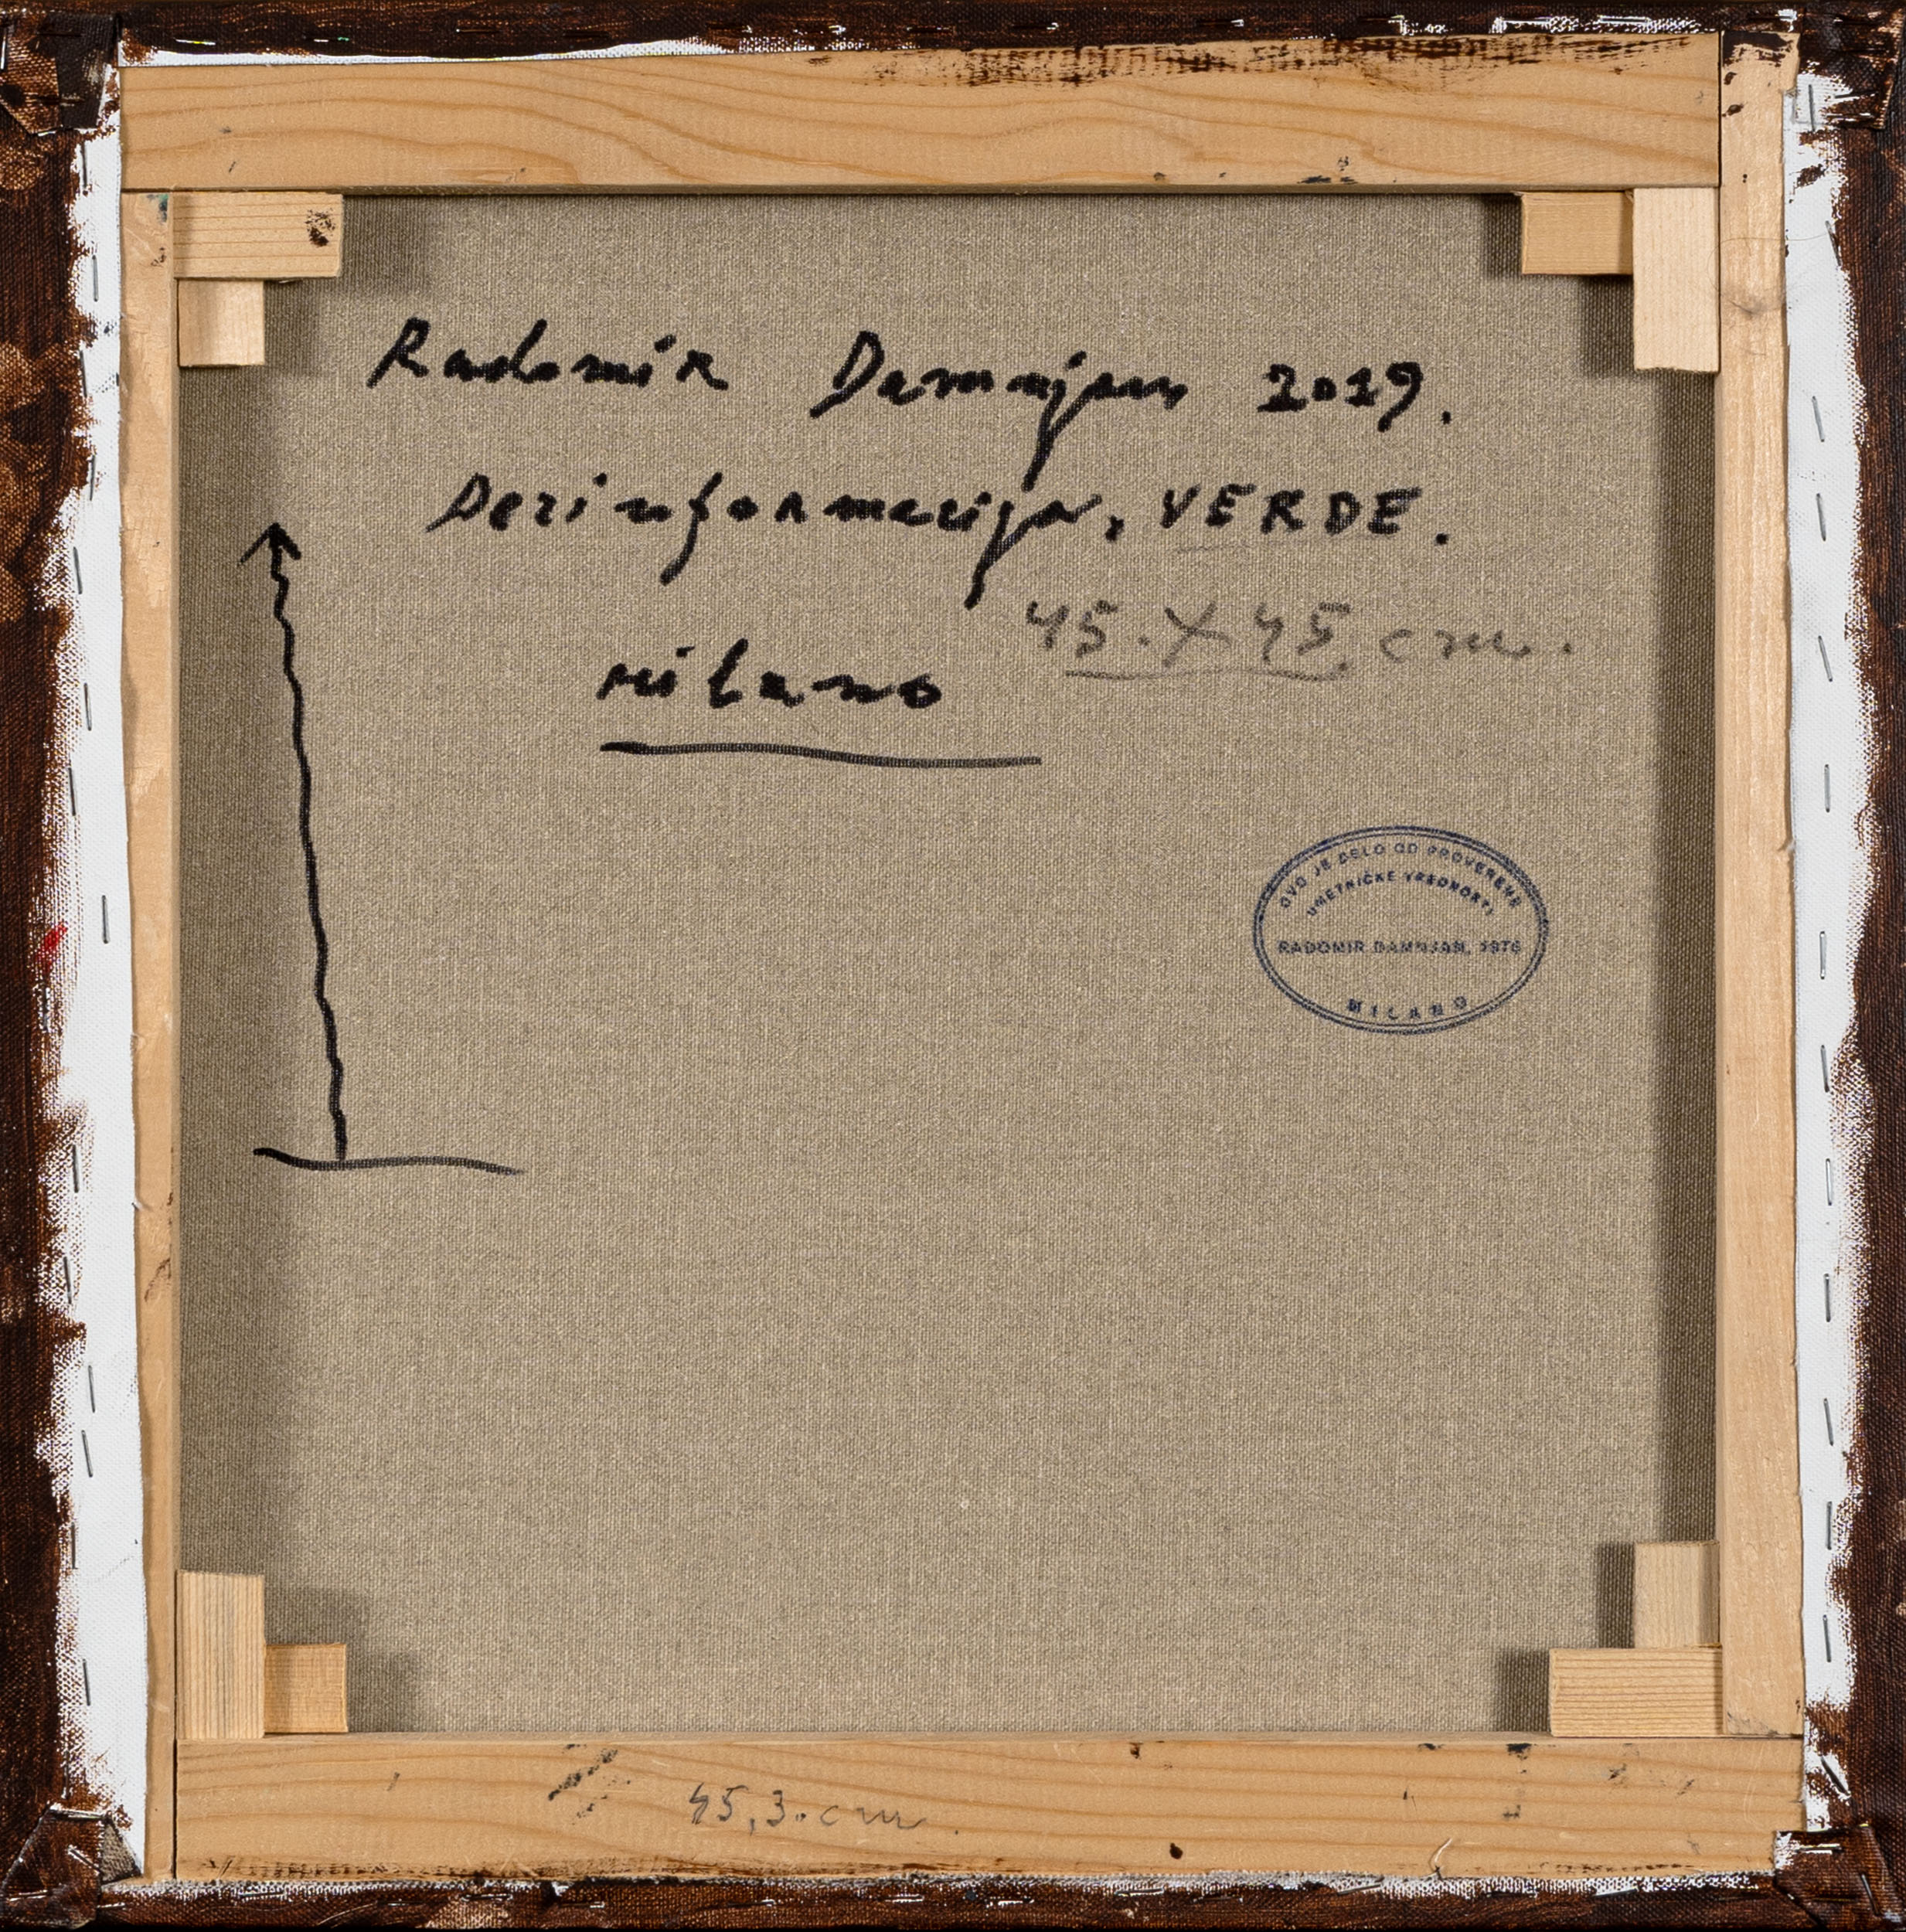 Radomir Damnjan 2019.
Dezinformacija, VERDE.
45 X 45 cm.
Milano
OVO JE DELO OD PROVERENE
UMETNIČKE VREDNOSTI
RADOMIR DAMNJAN, 1976
MILANO
45,3. cm.